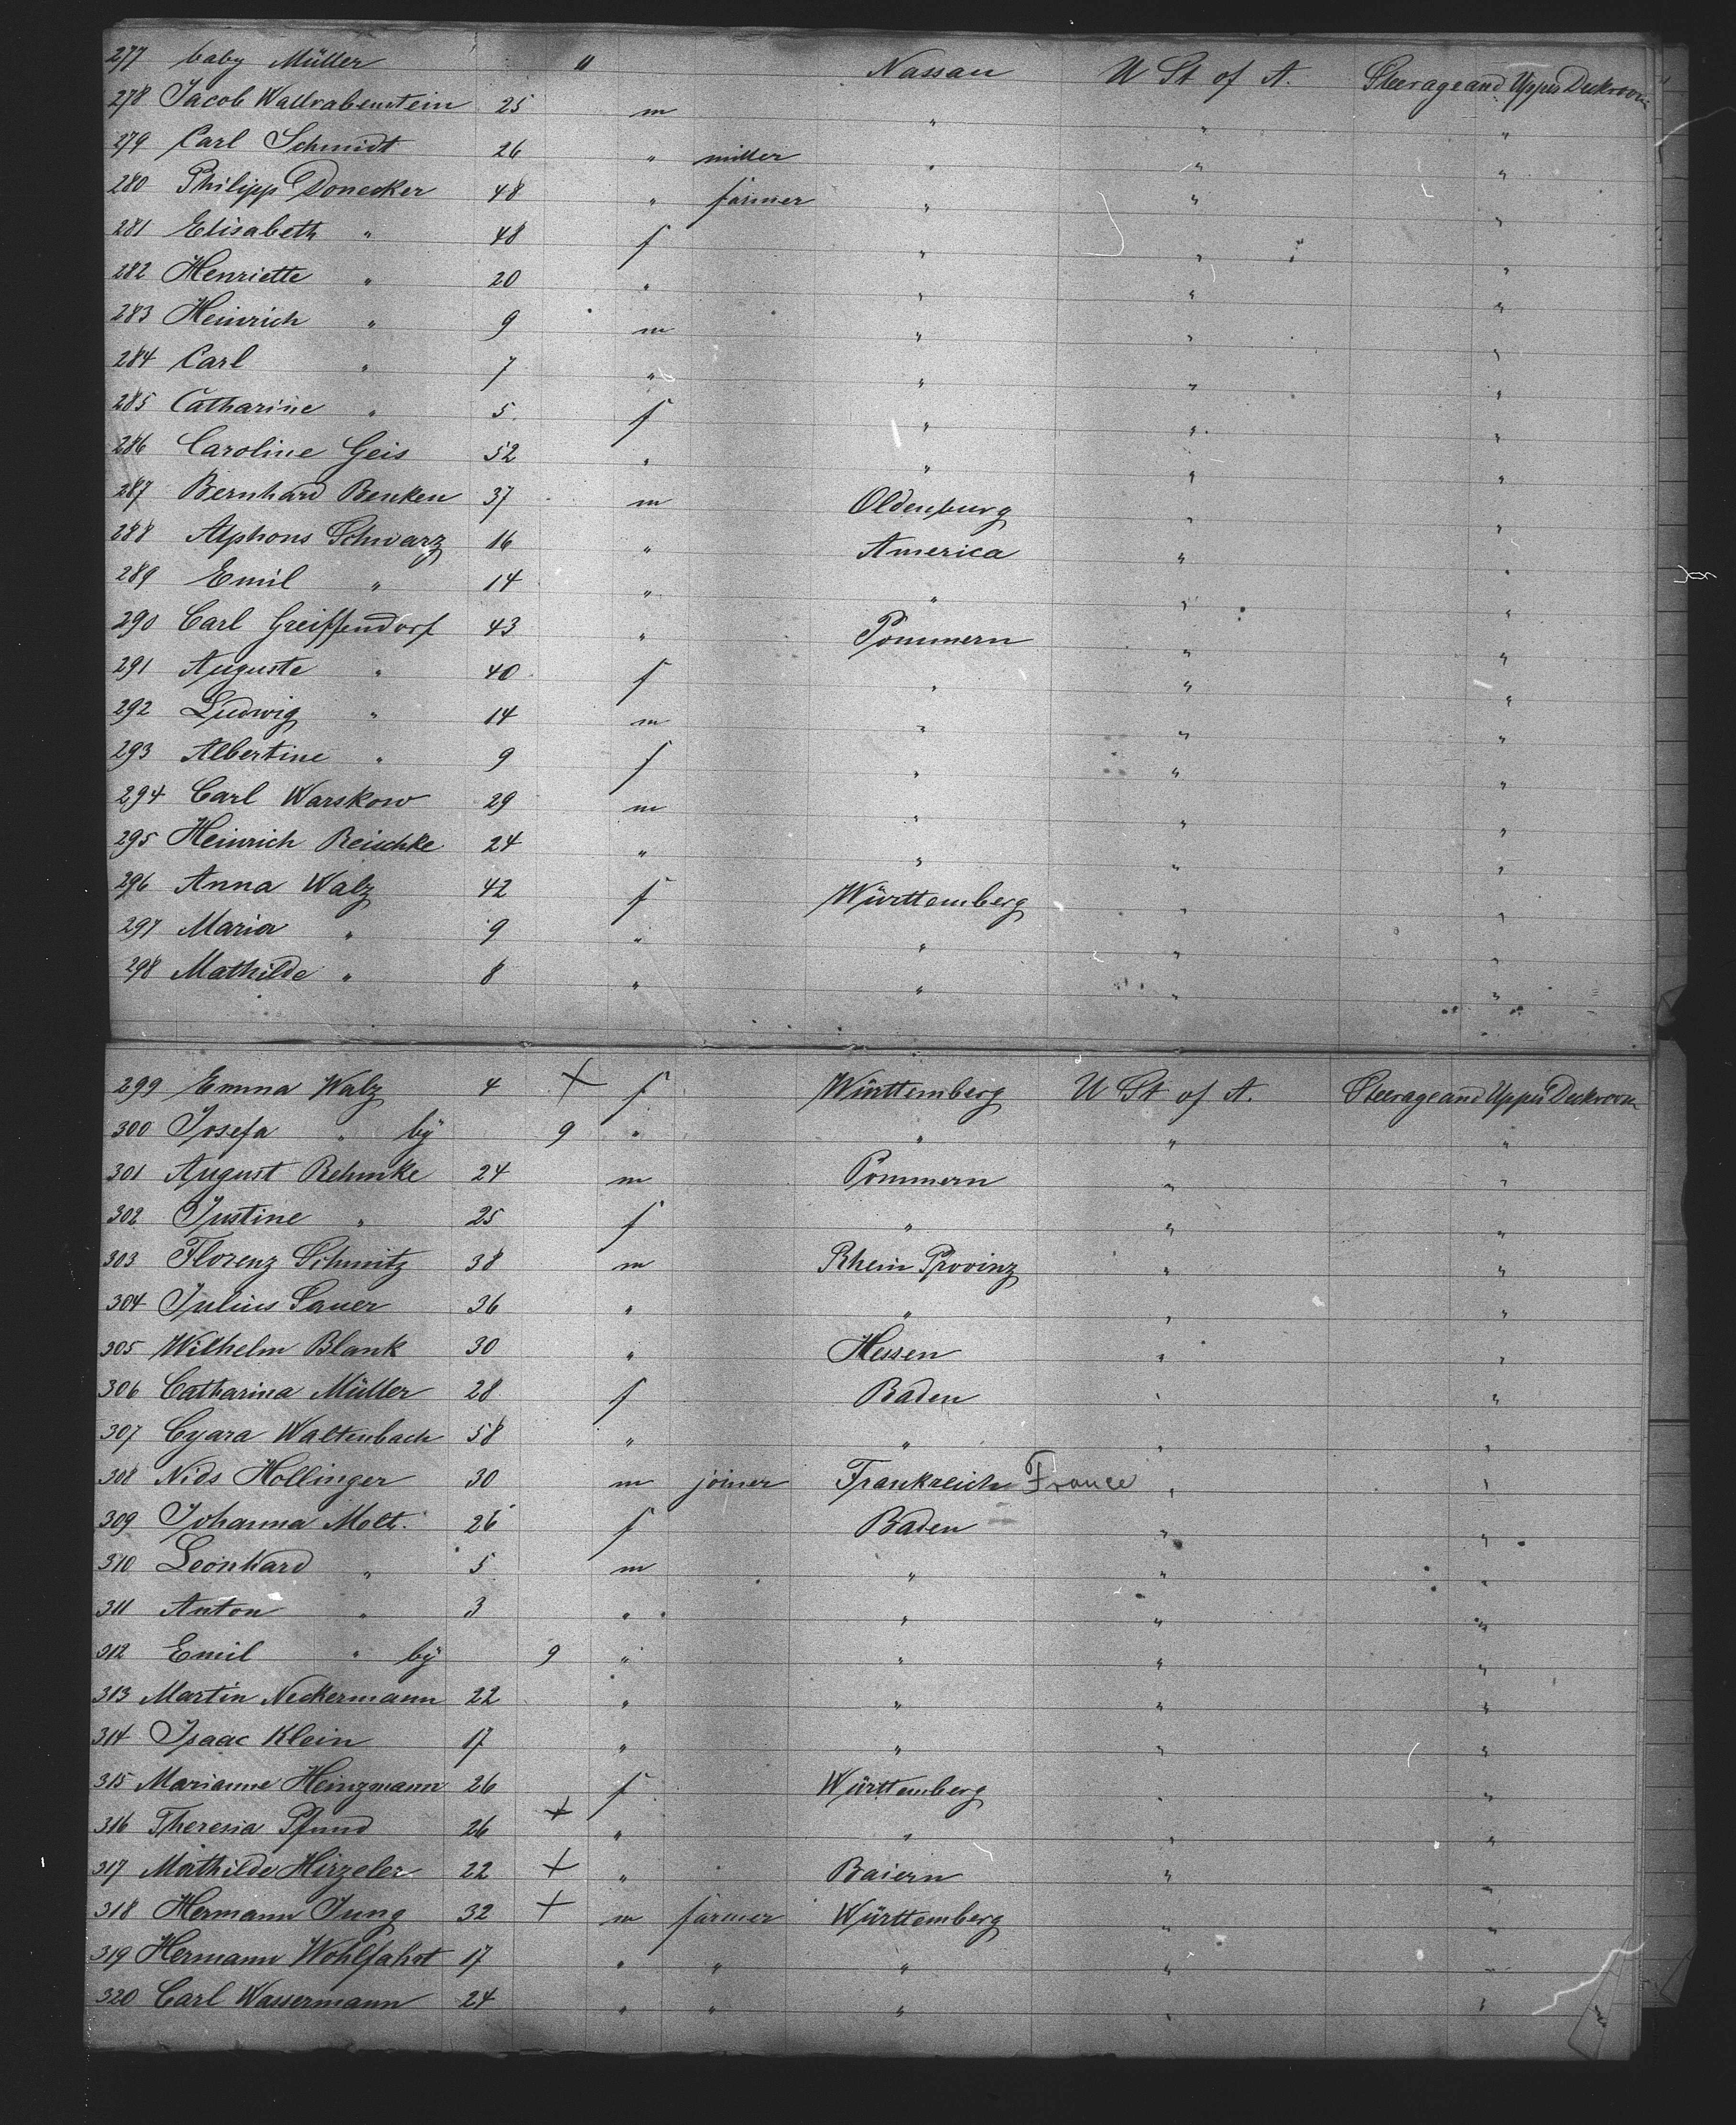 277 baby Müller " Nassau U St of A. Steerage and Upper Deckroom
278 Jacob Wallrabenstein 25 m " " "
279 Carl Schmidt 26 " miller " " "
280 Philipp Donecker 48 " farmer " " "
281 Elisabeth " 48 f " " "
282 Henriette " 20 " " " "
283 Heinrich " 9 m " " "
284 Carl " 7 " " " "
285 Catharine " 5 f " " "
286 Caroline Geis 52 " " " "
287 Bernhard Benken 37 m Oldenburg " "
288 Alphons Schwarz 16 " America " "
289 Emil " 14 " " " "
290 Carl Greiffendorf 43 " Pommern " "
291 Auguste " 40 f " " "
292 Ludwig " 14 m " " "
293 Albertine " 9 f " " "
294 Carl Warskow 29 m " " "
295 Heinrich Reischke 24 " " " "
296 Anna Walz 42 f Württemberg " "
297 Maria " 9 " " " "
298 Mathilde " 8 " " " "
299 Emma Walz 4 + f Württemberg U St of A. Steerage and Upper Deckroom
300 Josefa " by 9 " " " "
301 August Rehmke 24 m Pommern " "
302 Justine " 25 f " " "
303 Florenz Schmitz 38 m Rhein Provinz " "
304 Julius Sauer 36 " " " "
305 Wilhelm Blank 30 " Hessen " "
306 Catharina Müller 28 f Baden " "
307 Cyara Waltenbach 58 " " " "
308 Nids Hollinger 30 m joiner Frankreich France " "
309 Johanna Molt. 26 f Baden " "
310 Leonhard " 5 m " " "
311 Anton " 3 " " " "
312 Emil " by 9 " " " "
313 Martin Neckermann 22 " " " "
314 Isaac Klein 17 " " " "
315 Marianne Heinzmann 26 f Württemberg " "
316 Theresia Pfund 26 + " " " "
317 Mathilde Hirzeler 22 + " Baiern " "
318 Hermann Jung 32 + m farmer Württemberg " "
319 Hermann Wohlfahrt 17 " " " " "
320 Carl Wassermann 24 " " " " "